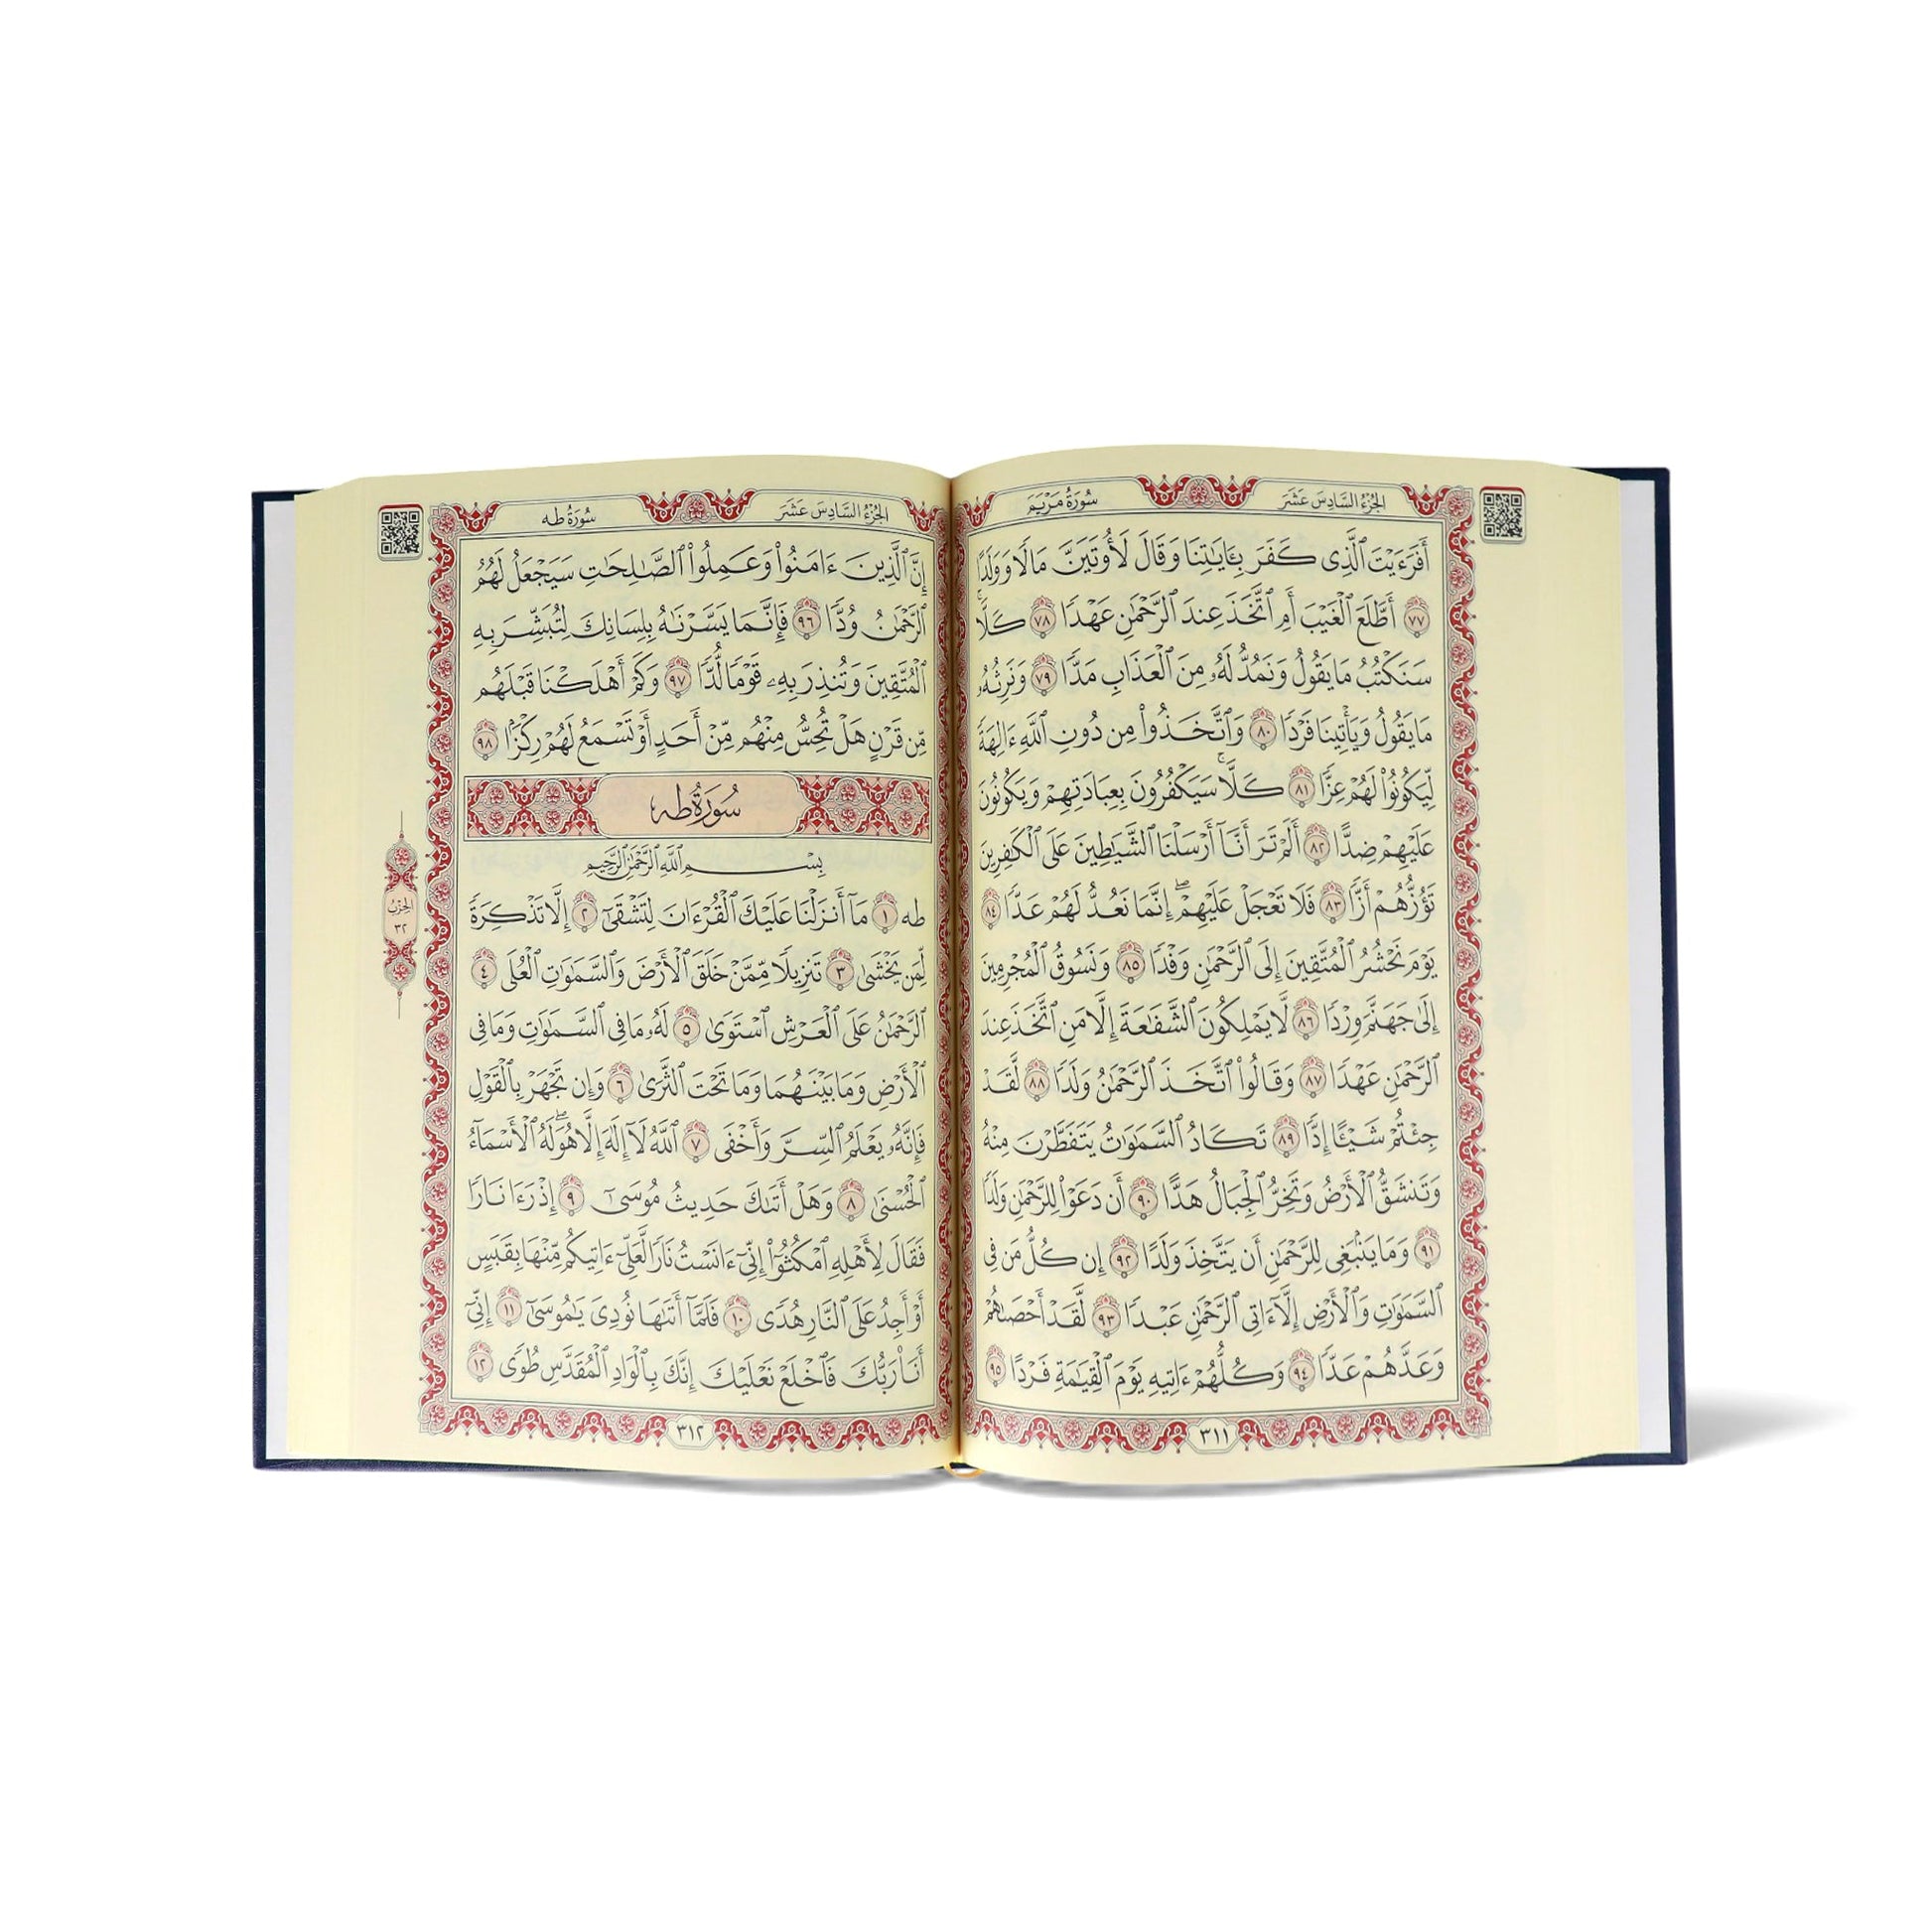 الجُزْءُ السَّادِسَ عَشَرَ
سُورَةُ مَرْيَمَ
أَفَرَءَيْتَ ٱلَّذِى كَفَرَ بِـَٔايَٰتِنَا وَقَالَ لَأُوتَيَنَّ مَالًا وَوَلَدًا
٧٧ أَطَّلَعَ ٱلْغَيْبَ أَمِ ٱتَّخَذَ عِندَ ٱلرَّحْمَٰنِ عَهْدًا ٧٨ كَلَّا ۚ
سَنَكْتُبُ مَا يَقُولُ وَنَمُدُّ لَهُۥ مِنَ ٱلْعَذَابِ مَدًّا ٧٩ وَنَرِثُهُۥ
مَا يَقُولُ وَيَأْتِينَا فَرْدًا ٨٠ وَٱتَّخَذُوا۟ مِن دُونِ ٱللَّهِ ءَالِهَةً
لِّيَكُونُوا۟ لَهُمْ عِزًّا ٨١ كَلَّا ۚ سَيَكْفُرُونَ بِعِبَادَتِهِمْ وَيَكُونُونَ
عَلَيْهِمْ ضِدًّا ٨٢ أَلَمْ تَرَ أَنَّآ أَرْسَلْنَا ٱلشَّيَٰطِينَ عَلَى ٱلْكَٰفِرِينَ
تَؤُزُّهُمْ أَزًّا ٨٣ فَلَا تَعْجَلْ عَلَيْهِمْ ۖ إِنَّمَا نَعُدُّ لَهُمْ عَدًّا ٨٤
يَوْمَ نَحْشُرُ ٱلْمُتَّقِينَ إِلَى ٱلرَّحْمَٰنِ وَفْدًا ٨٥ وَنَسُوقُ ٱلْمُجْرِمِينَ
إِلَىٰ جَهَنَّمَ وِرْدًا ٨٦ لَّا يَمْلِكُونَ ٱلشَّفَٰعَةَ إِلَّا مَنِ ٱتَّخَذَ عِندَ
ٱلرَّحْمَٰنِ عَهْدًا ٨٧ وَقَالُوا۟ ٱتَّخَذَ ٱلرَّحْمَٰنُ وَلَدًا ٨٨ لَّقَدْ
جِئْتُمْ شَيْـًٔا إِدًّا ٨٩ تَكَادُ ٱلسَّمَٰوَٰتُ يَتَفَطَّرْنَ مِنْهُ
وَتَنشَقُّ ٱلْأَرْضُ وَتَخِرُّ ٱلْجِبَالُ هَدًّا ٩٠ أَن دَعَوْا۟ لِلرَّحْمَٰنِ وَلَدًا
٩١ وَمَا يَنۢبَغِى لِلرَّحْمَٰنِ أَن يَتَّخِذَ وَلَدًا ٩٢ إِن كُلُّ مَن فِى
ٱلسَّمَٰوَٰتِ وَٱلْأَرْضِ إِلَّآ ءَاتِى ٱلرَّحْمَٰنِ عَبْدًا ٩٣ لَّقَدْ أَحْصَىٰهُمْ
وَعَدَّهُمْ عَدًّا ٩٤ وَكُلُّهُمْ ءَاتِيهِ يَوْمَ ٱلْقِيَٰمَةِ فَرْدًا ٩٥
٣١١
الجُزْءُ السَّادِسَ عَشَرَ
سُورَةُ طه
إِنَّ ٱلَّذِينَ ءَامَنُوا۟ وَعَمِلُوا۟ ٱلصَّٰلِحَٰتِ سَيَجْعَلُ لَهُمُ
ٱلرَّحْمَٰنُ وُدًّا ٩٦ فَإِنَّمَا يَسَّرْنَٰهُ بِلِسَانِكَ لِتُبَشِّرَ بِهِ
ٱلْمُتَّقِينَ وَتُنذِرَ بِهِۦ قَوْمًا لُّدًّا ٩٧ وَكَمْ أَهْلَكْنَا قَبْلَهُم
مِّن قَرْنٍ هَلْ تُحِسُّ مِنْهُم مِّنْ أَحَدٍ أَوْ تَسْمَعُ لَهُمْ رِكْزًۢا ٩٨
سُورَةُ طه
بِسْمِ ٱللَّهِ ٱلرَّحْمَٰنِ ٱلرَّحِيمِ
طه ١ مَآ أَنزَلْنَا عَلَيْكَ ٱلْقُرْءَانَ لِتَشْقَىٰٓ ٢ إِلَّا تَذْكِرَةً
لِّمَن يَخْشَىٰ ٣ تَنزِيلًا مِّمَّنْ خَلَقَ ٱلْأَرْضَ وَٱلسَّمَٰوَٰتِ ٱلْعُلَى ٤
ٱلرَّحْمَٰنُ عَلَى ٱلْعَرْشِ ٱسْتَوَىٰ ٥ لَهُۥ مَا فِى ٱلسَّمَٰوَٰتِ وَمَا فِى
ٱلْأَرْضِ وَمَا بَيْنَهُمَا وَمَا تَحْتَ ٱلثَّرَىٰ ٦ وَإِن تَجْهَرْ بِٱلْقَوْلِ
فَإِنَّهُۥ يَعْلَمُ ٱلسِّرَّ وَأَخْفَى ٧ ٱللَّهُ لَآ إِلَٰهَ إِلَّا هُوَ ۖ لَهُ ٱلْأَسْمَآءُ
ٱلْحُسْنَىٰ ٨ وَهَلْ أَتَىٰكَ حَدِيثُ مُوسَىٰٓ ٩ إِذْ رَءَا نَارًا
فَقَالَ لِأَهْلِهِ ٱمْكُثُوٓا۟ إِنِّىٓ ءَانَسْتُ نَارًا لَّعَلِّىٓ ءَاتِيكُم مِّنْهَا بِقَبَسٍ
أَوْ أَجِدُ عَلَى ٱلنَّارِ هُدًى ١٠ فَلَمَّآ أَتَىٰهَا نُودِىَ يَٰمُوسَىٰٓ ١١ إِنِّىٓ
أَنَا۠ رَبُّكَ فَٱخْلَعْ نَعْلَيْكَ ۖ إِنَّكَ بِٱلْوَادِ ٱلْمُقَدَّسِ طُوًى ١٢
٣١٢
الحِزْبُ
٣٢